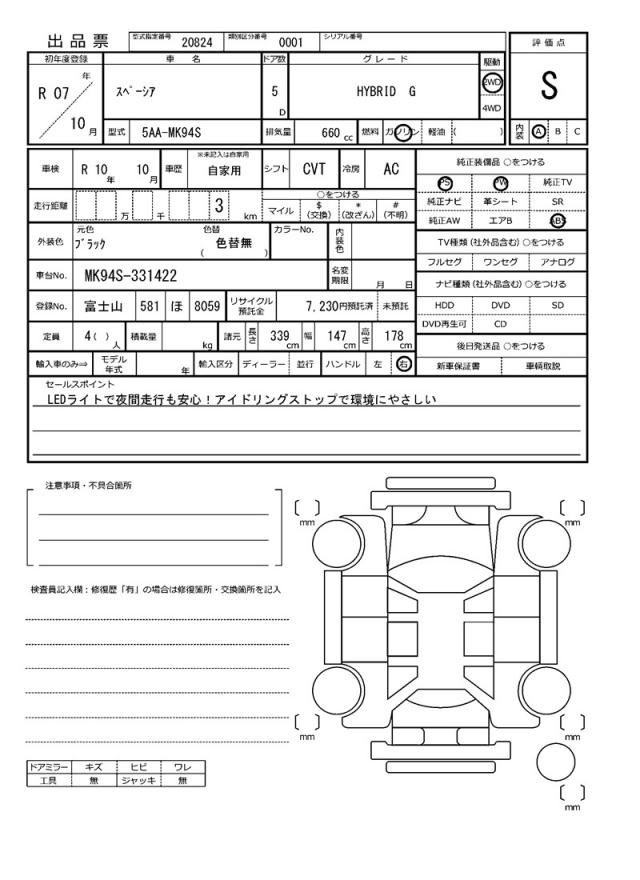 出品票 型式指定番号 20824 類別区分番号 0001 シリアル番号
評価点
S
内装 A B C
初年度登録 車名 ドア数 グレード 駆動
R 07 年 10 月 スペーシア 5 D HYBRID G 2WD 4WD
型式 5AA-MK94S 排気量 660 cc 燃料 ガソリン 軽油 ( )
車検 R 10 年 10 月 車歴 ※未記入は自家用 自家用 シフト CVT 冷房 AC
走行距離 万 千 3 km ○をつける
マイル $ (交換) * (改ざん) # (不明)
外装色 元色 ブラック 色替 ( 色替無 ) カラーNo. 内装色
車台No. MK94S-331422 名変期限 月 日
登録No. 富士山 581 ほ 8059 リサイクル預託金 7,230円預託済 未預託
定員 4 ( ) 人 積載量 kg 諸元 長さ 339 cm 幅 147 cm 高さ 178 cm
輸入車のみ⇒ モデル年式 年 輸入区分 ディーラー 並行 ハンドル 左 右
純正装備品 ○をつける
PS PW 純正TV
純正ナビ 革シート SR
純正AW エアB ABS
TV種類 (社外品含む) ○をつける
フルセグ ワンセグ アナログ
ナビ種類 (社外品含む) ○をつける
HDD DVD SD
DVD再生可 CD
後日発送品 ○をつける
新車保証書 車輌取説
セールスポイント
LEDライトで夜間走行も安心！アイドリングストップで環境にやさしい
注意事項・不具合箇所
検査員記入欄：修復歴「有」の場合は修復箇所・交換箇所を記入
ドアミラー キズ ヒビ ワレ
工具 無 ジャッキ 無
〔 〕 mm
〔 〕 mm
〔 〕 mm
〔 〕 mm
〔 〕 mm